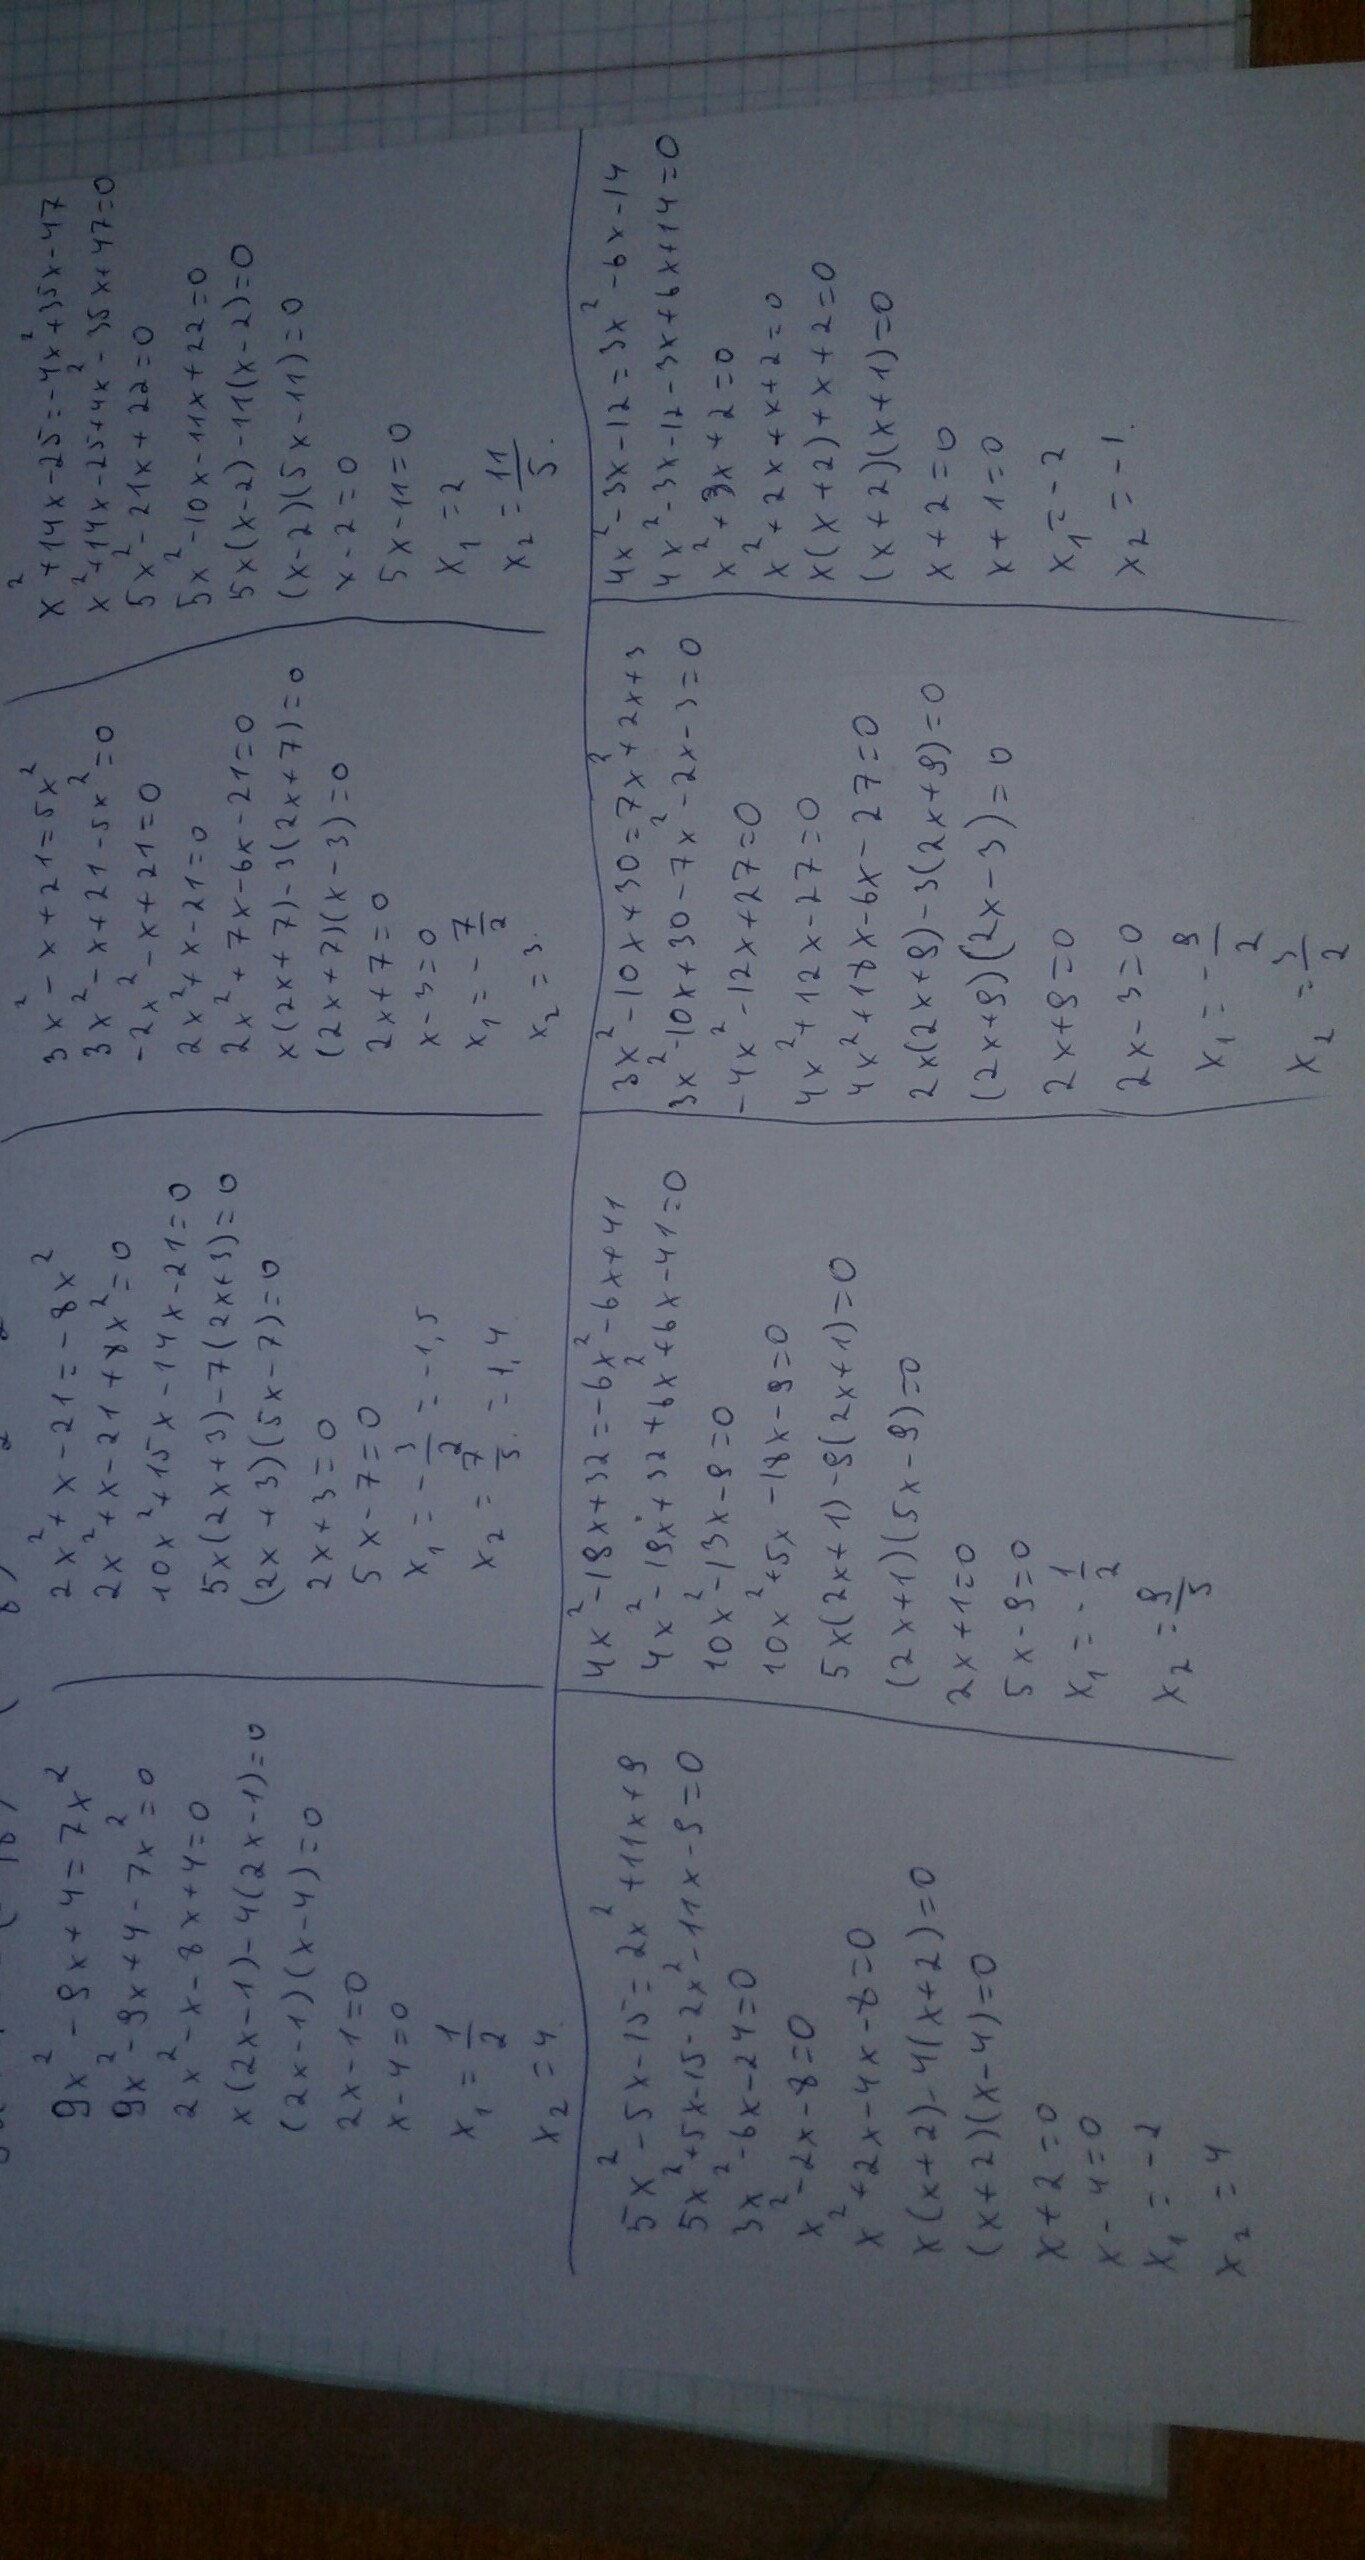 9x² - 9x + 4 = 7x²
9x² - 9x + 4 - 7x² = 0
2x² - x - 8x + 4 = 0
x(2x - 1) - 4(2x - 1) = 0
(2x - 1)(x - 4) = 0
2x - 1 = 0
x - 4 = 0
x₁ = 1/2
x₂ = 4.
2x² + x - 21 = -8x²
2x² + x - 21 + 8x² = 0
10x² + 15x - 14x - 21 = 0
5x(2x + 3) - 7(2x + 3) = 0
(2x + 3)(5x - 7) = 0
2x + 3 = 0
5x - 7 = 0
x₁ = -3/2 = -1,5
x₂ = 7/5 = 1,4.
3x² - x + 21 = 5x²
3x² - x + 21 - 5x² = 0
-2x² - x + 21 = 0
2x² + x - 21 = 0
2x² + 7x - 6x - 21 = 0
x(2x + 7) - 3(2x + 7) = 0
(2x + 7)(x - 3) = 0
2x + 7 = 0
x - 3 = 0
x₁ = -7/2
x₂ = 3.
x² + 14x - 25 = -4x² + 35x - 47
x² + 14x - 25 + 4x² - 35x + 47 = 0
5x² - 21x + 22 = 0
5x² - 10x - 11x + 22 = 0
5x(x - 2) - 11(x - 2) = 0
(x - 2)(5x - 11) = 0
x - 2 = 0
5x - 11 = 0
x₁ = 2
x₂ = 11/5.
5x² - 5x - 15 = 2x² + 11x + 9
5x² + 5x - 15 - 2x² - 11x - 9 = 0
3x² - 6x - 24 = 0
x² - 2x - 8 = 0
x² + 2x - 4x - 8 = 0
x(x + 2) - 4(x + 2) = 0
(x + 2)(x - 4) = 0
x + 2 = 0
x - 4 = 0
x₁ = -2
x₂ = 4
4x² - 19x + 32 = -6x² - 6x + 41
4x² - 19x + 32 + 6x² + 6x - 41 = 0
10x² - 13x - 9 = 0
10x² + 5x - 18x - 9 = 0
5x(2x + 1) - 9(2x + 1) = 0
(2x + 1)(5x - 9) = 0
2x + 1 = 0
5x - 9 = 0
x₁ = -1/2
x₂ = 9/5
3x² - 10x + 30 = 7x² + 2x + 3
3x² - 10x + 30 - 7x² - 2x - 3 = 0
-4x² - 12x + 27 = 0
4x² + 12x - 27 = 0
4x² + 18x - 6x - 27 = 0
2x(2x + 9) - 3(2x + 9) = 0
(2x + 9)(2x - 3) = 0
2x + 9 = 0
2x - 3 = 0
x₁ = -9/2
x₂ = 3/2
4x² - 3x - 12 = 3x² - 6x - 14
4x² - 3x - 12 - 3x + 6x + 14 = 0
x² + 3x + 2 = 0
x² + 2x + x + 2 = 0
x(x + 2) + x + 2 = 0
(x + 2)(x + 1) = 0
x + 2 = 0
x + 1 = 0
x₁ = -2
x₂ = -1.